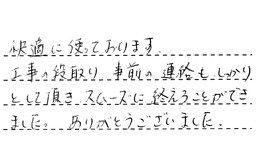 快適に使っております.
工事の段取り 事前の連絡も しっかり
として頂き スムーズに 終えることができ
ました。 ありがとうございました.